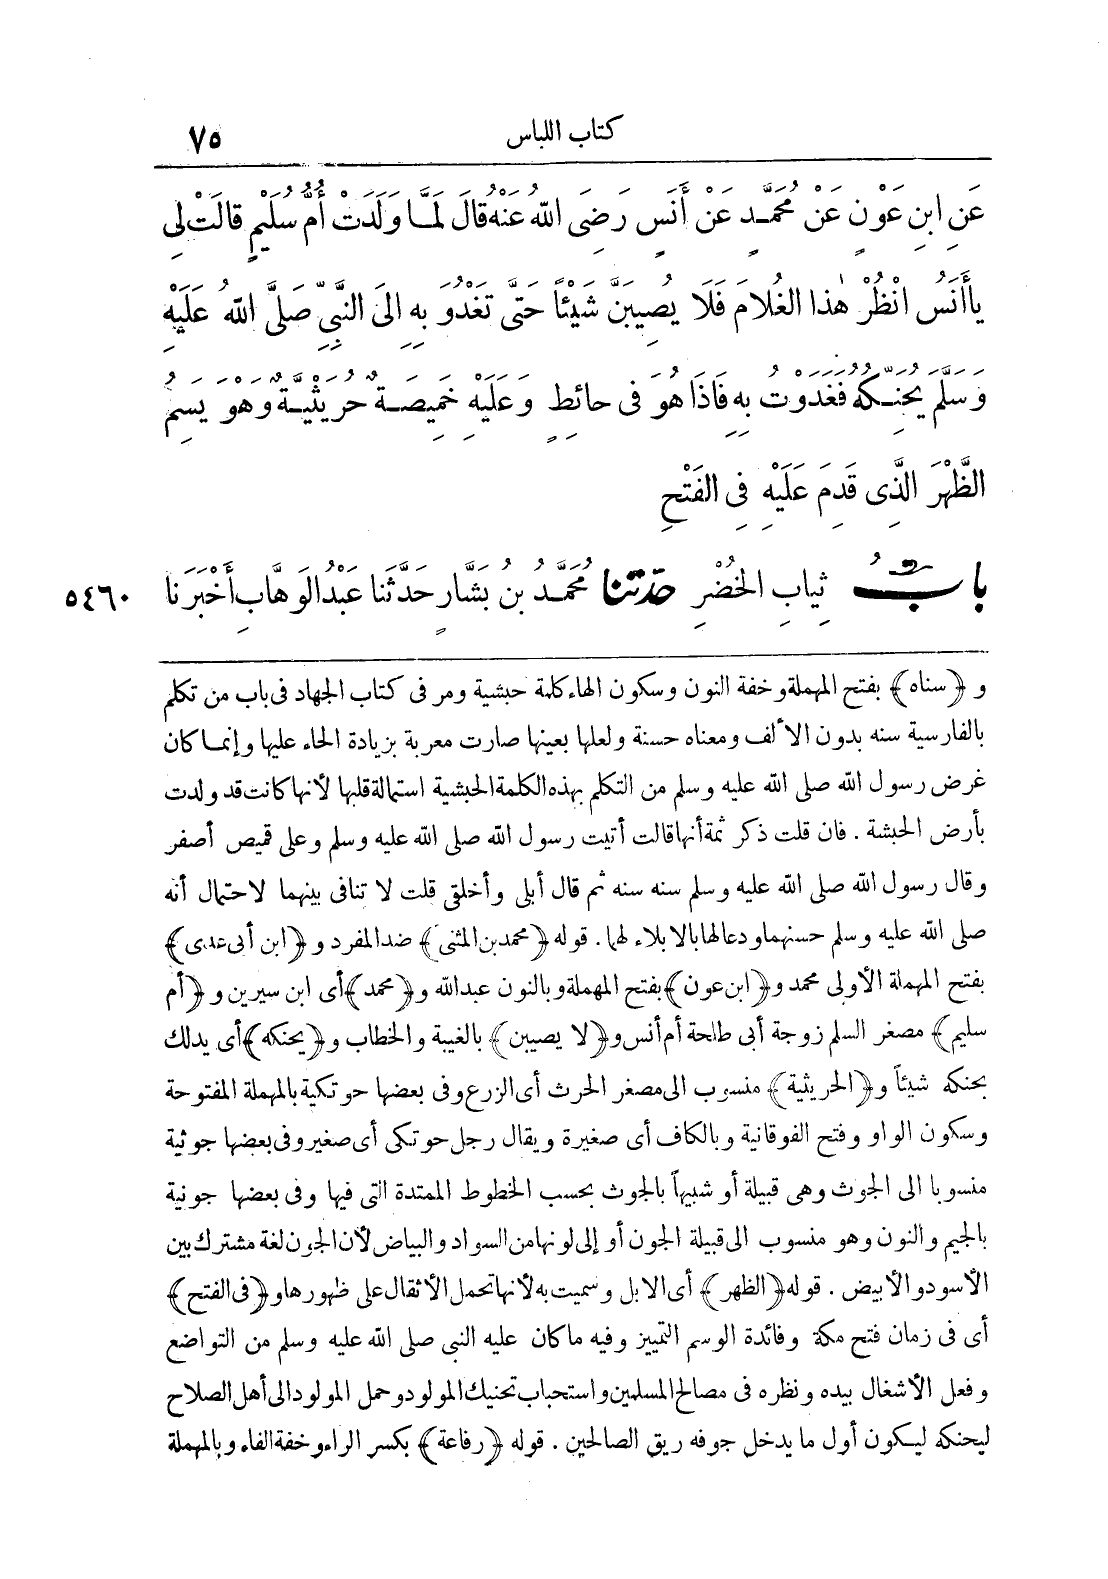 كتاب اللباس ٧٥
عَنِ ابنِ عَوْنٍ عَنْ مُحَمَّدٍ عَنْ أَنَسٍ رَضِىَ اللهُ عَنْهُ قالَ لَمَّا وَلَدَتْ أُمُّ سُلَيْمٍ قالَتْ لِى
ياأَنَسُ انْظُرْ هٰذا الغُلامَ فَلَا يُصِيبَنَّ شَيْئاً حَتَّى تَغْدُوَ بِهِ الىَ النَّبِىِّ صَلَّى اللهُ عَلَيْهِ
وَسَلَّمَ يُحَنِّكُهُ فَغَدَوْتُ بِهِ فَاذَا هُوَ فى حائِطٍ وَعَلَيْهِ خَمِيصَةٌ حُرَيْثِيَّةٌ وَهْوَ يَسِمُ
الظَّهْرَ الَّذِى قَدِمَ عَلَيْهِ فِى الفَتْحِ
بابُ ثِيابِ الخُضْرِ حدّثنا مُحَمَّدُ بنُ بَشَّارٍ حَدَّثَنا عَبْدُ الوَهَّابِ أَخْبَرَنا ٥٤٦٠
و ﴿سناه﴾ بفتح المهملة وخفة النون وسكون الهاء كلمة حبشية ومر فى كتاب الجهاد فى باب من تكلم
بالفارسية سنه بدون الألف ومعناه حسنة ولعلها بعينها صارت معربة بزيادة الحاء عليها وإنما كان
غرض رسول الله صلى الله عليه وسلم من التكلم بهذه الكلمة الحبشية استمالة قلبها لأنها كانت قد ولدت
بأرض الحبشة . فان قلت ذكر ثمة أنها قالت أتيت رسول الله صلى الله عليه وسلم وعلى قميص أصفر
وقال رسول الله صلى الله عليه وسلم سنه سنه ثم قال أبلى وأخلقى قلت لا تنافى بينهما لاحتمال أنه
صلى الله عليه وسلم حسنهما ودعا لها بالابلاء لها . قوله ﴿محمد بن المثنى﴾ ضد المفرد و ﴿ابن أبى عدى﴾
بفتح المهملة الأولى محمد و﴿ابن عون﴾ بفتح المهملة وبالنون عبد الله و﴿محمد﴾ أى ابن سيرين و ﴿أم
سليم﴾ مصغر السلم زوجة أبى طلحة أم أنس و﴿لا يصيبن﴾ بالغيبة والخطاب و﴿يحنكه﴾ أى يدلك
بحنكه شيئاً و﴿الحريثية﴾ منسوب الى مصغر الحرث أى الزرع وفى بعضها حوتكية بالمهملة المفتوحة
وسكون الواو وفتح الفوقانية وبالكاف أى صغيرة ويقال رجل حوتكى أى صغير وفى بعضها جوثية
منسوبا الى الجوث وهى قبيلة أو شبيهاً بالجوث بحسب الخطوط الممتدة التى فيها وفى بعضها جونية
بالجيم والنون وهو منسوب الى قبيلة الجون أو إلى لونها من السواد والبياض لأن الجون لغة مشترك بين
الأسود والأبيض . قوله ﴿الظهر﴾ أى الابل وسميت به لأنها تحمل الأثقال على ظهورها و﴿فى الفتح﴾
أى فى زمان فتح مكة وفائدة الوسم التمييز وفيه ما كان عليه النبى صلى الله عليه وسلم من التواضع
وفعل الأشغال بيده ونظره فى مصالح المسلمين واستحباب تحنيك المولود وحمل المولود الى أهل الصلاح
ليحنكه ليكون أول ما يدخل جوفه ريق الصالحين . قوله ﴿رفاعة﴾ بكسر الراء وخفة الفاء وبالمهملة